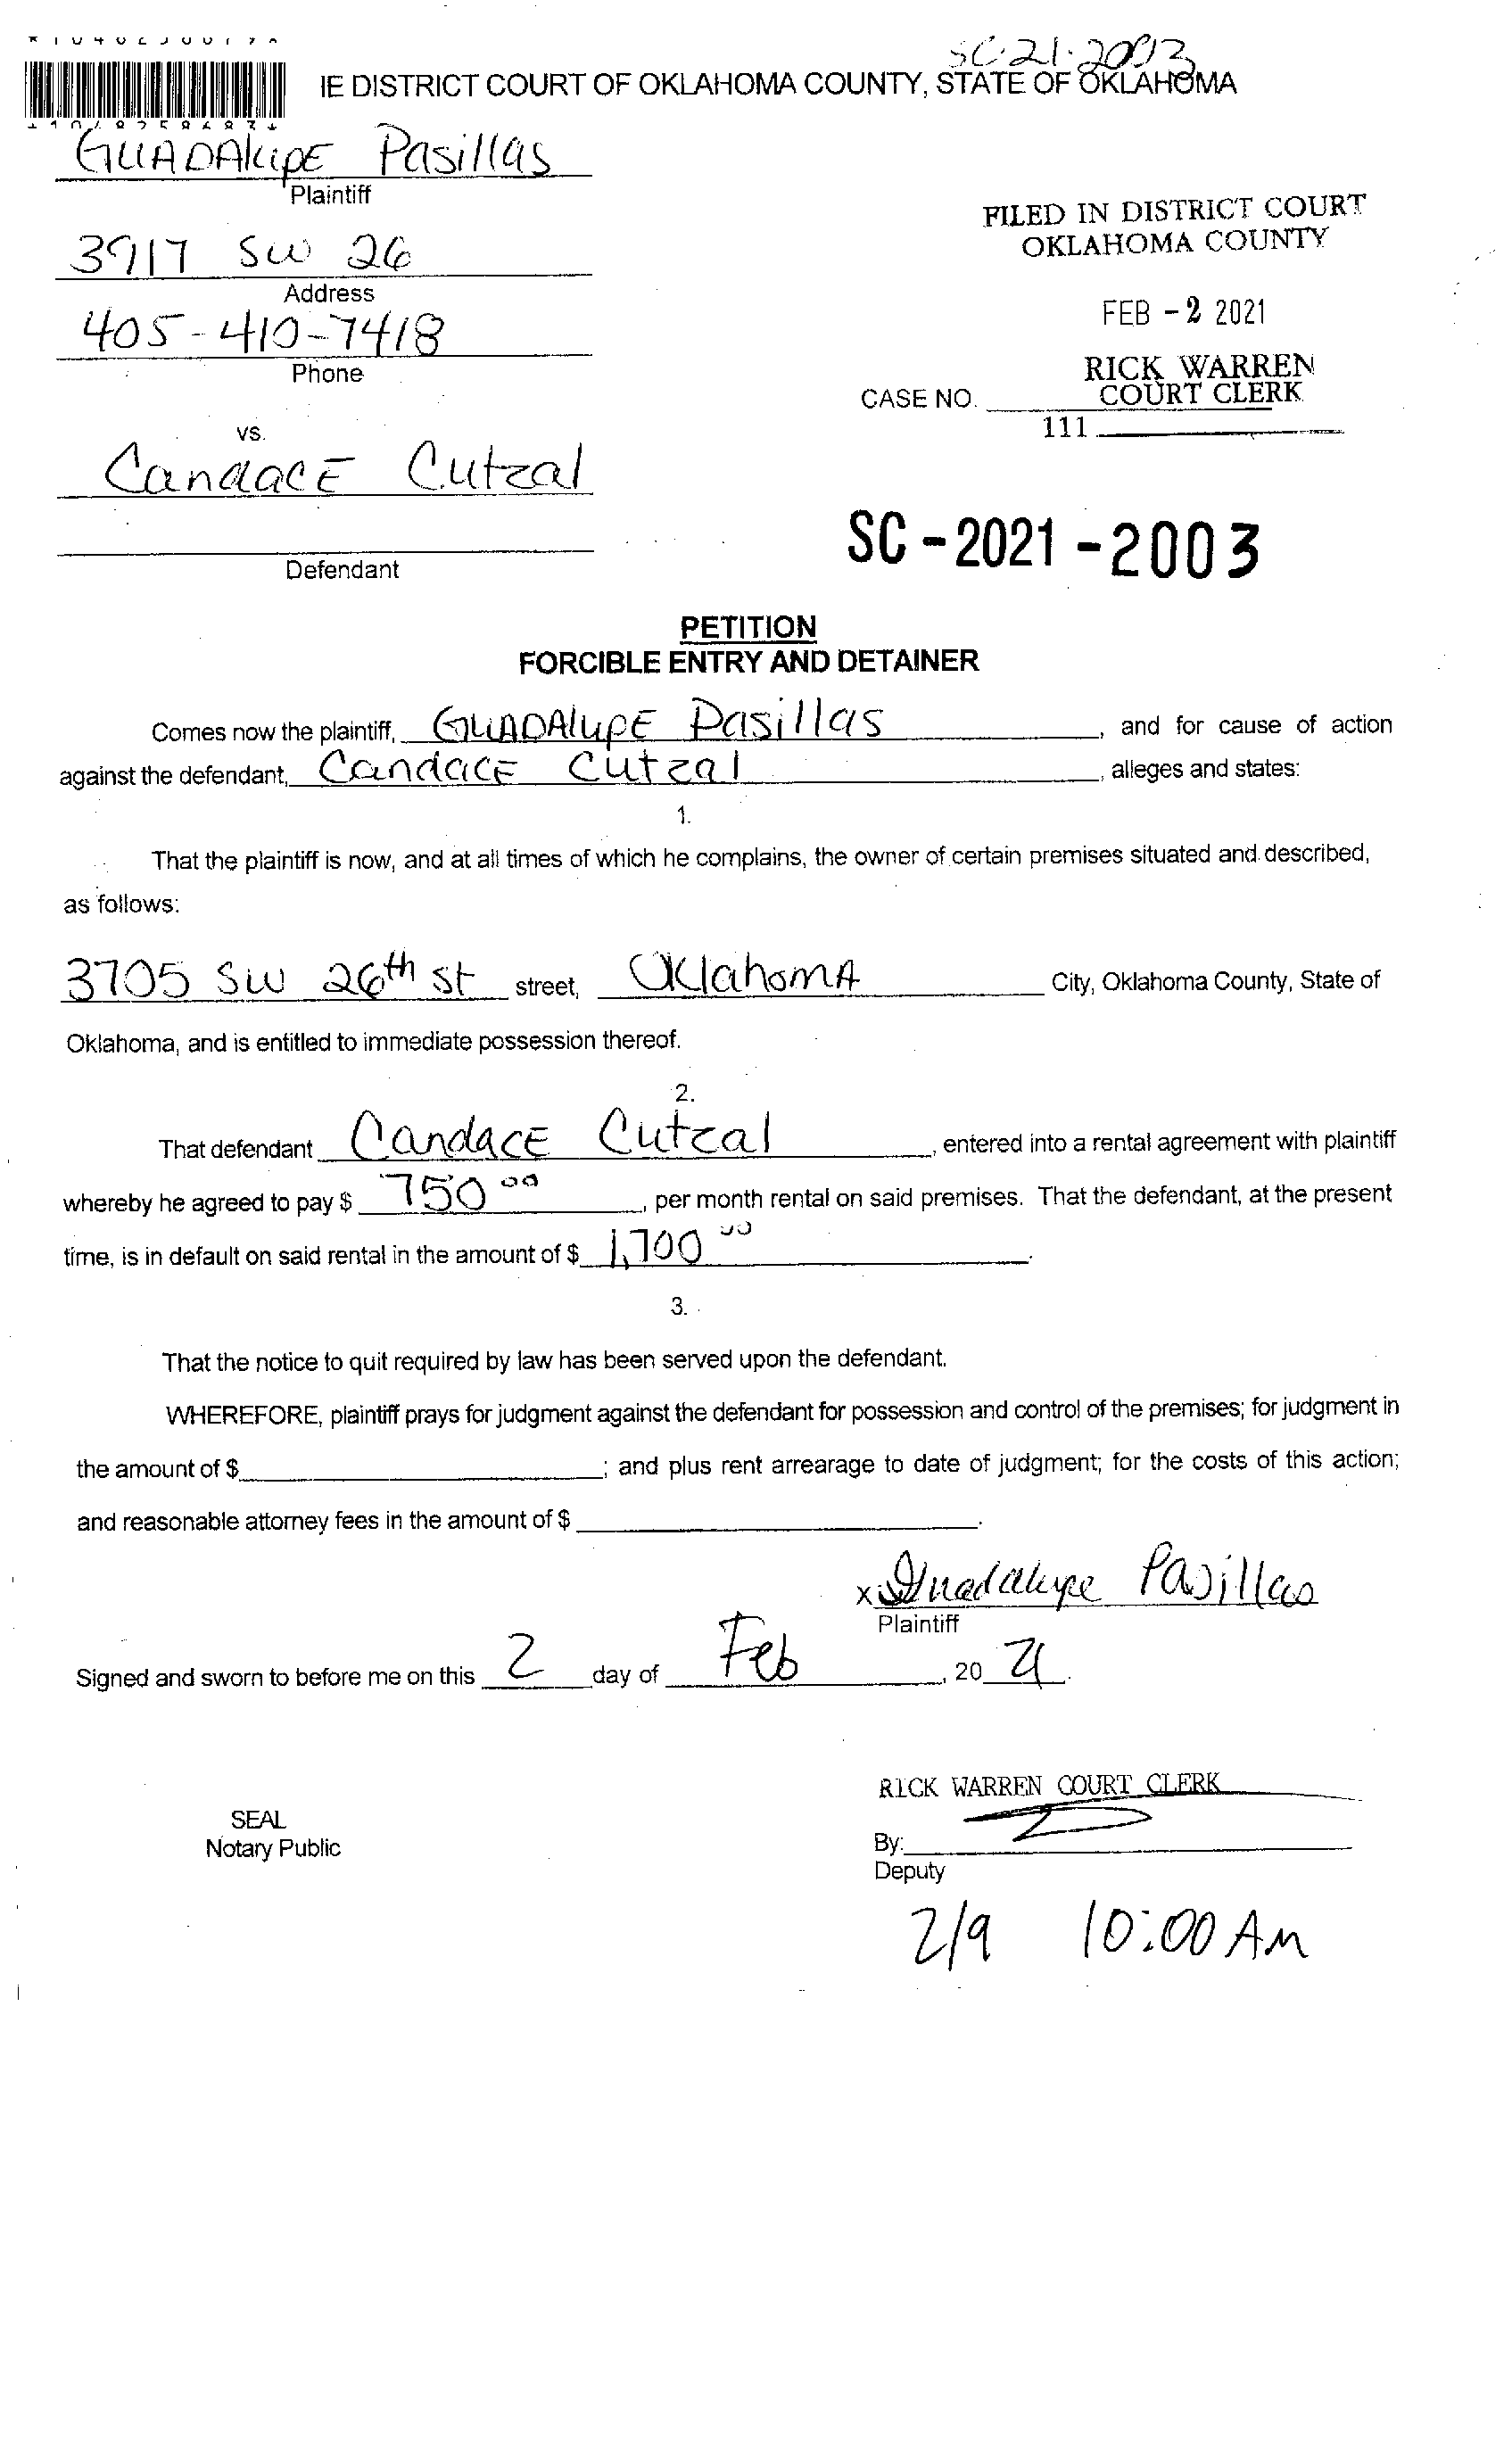 SC-21-2003
IE DISTRICT COURT OF OKLAHOMA COUNTY, STATE OF OKLAHOMA
GUADAlupE Pasillas
Plaintiff
3917 SW 26
Address
405-410-7418
Phone
vs.
CandacE Cutzal
Defendant
FILED IN DISTRICT COURT
OKLAHOMA COUNTY
FEB -2 2021
RICK WARREN
COURT CLERK
CASE NO.
111
SC-2021-2003
PETITION
FORCIBLE ENTRY AND DETAINER
Comes now the plaintiff, GUADAlupE Pasillas, and for cause of action
against the defendant, CandacE Cutzal, alleges and states:
1.
That the plaintiff is now, and at all times of which he complains, the owner of certain premises situated and described,
as follows:
3705 SW 26th St street, OklahomA City, Oklahoma County, State of
Oklahoma, and is entitled to immediate possession thereof.
2.
That defendant CandacE Cutzal, entered into a rental agreement with plaintiff
whereby he agreed to pay $ 750 00, per month rental on said premises. That the defendant, at the present
time, is in default on said rental in the amount of $ 1,700 00.
3.
That the notice to quit required by law has been served upon the defendant.
WHEREFORE, plaintiff prays for judgment against the defendant for possession and control of the premises; for judgment in
the amount of $ ; and plus rent arrearage to date of judgment; for the costs of this action;
and reasonable attorney fees in the amount of $ .
x Guadalupe Pasillas
Plaintiff
Signed and sworn to before me on this 2 day of Feb, 20 21.
RICK WARREN COURT CLERK
SEAL
Notary Public
By:
Deputy
2/9 10:00 AM